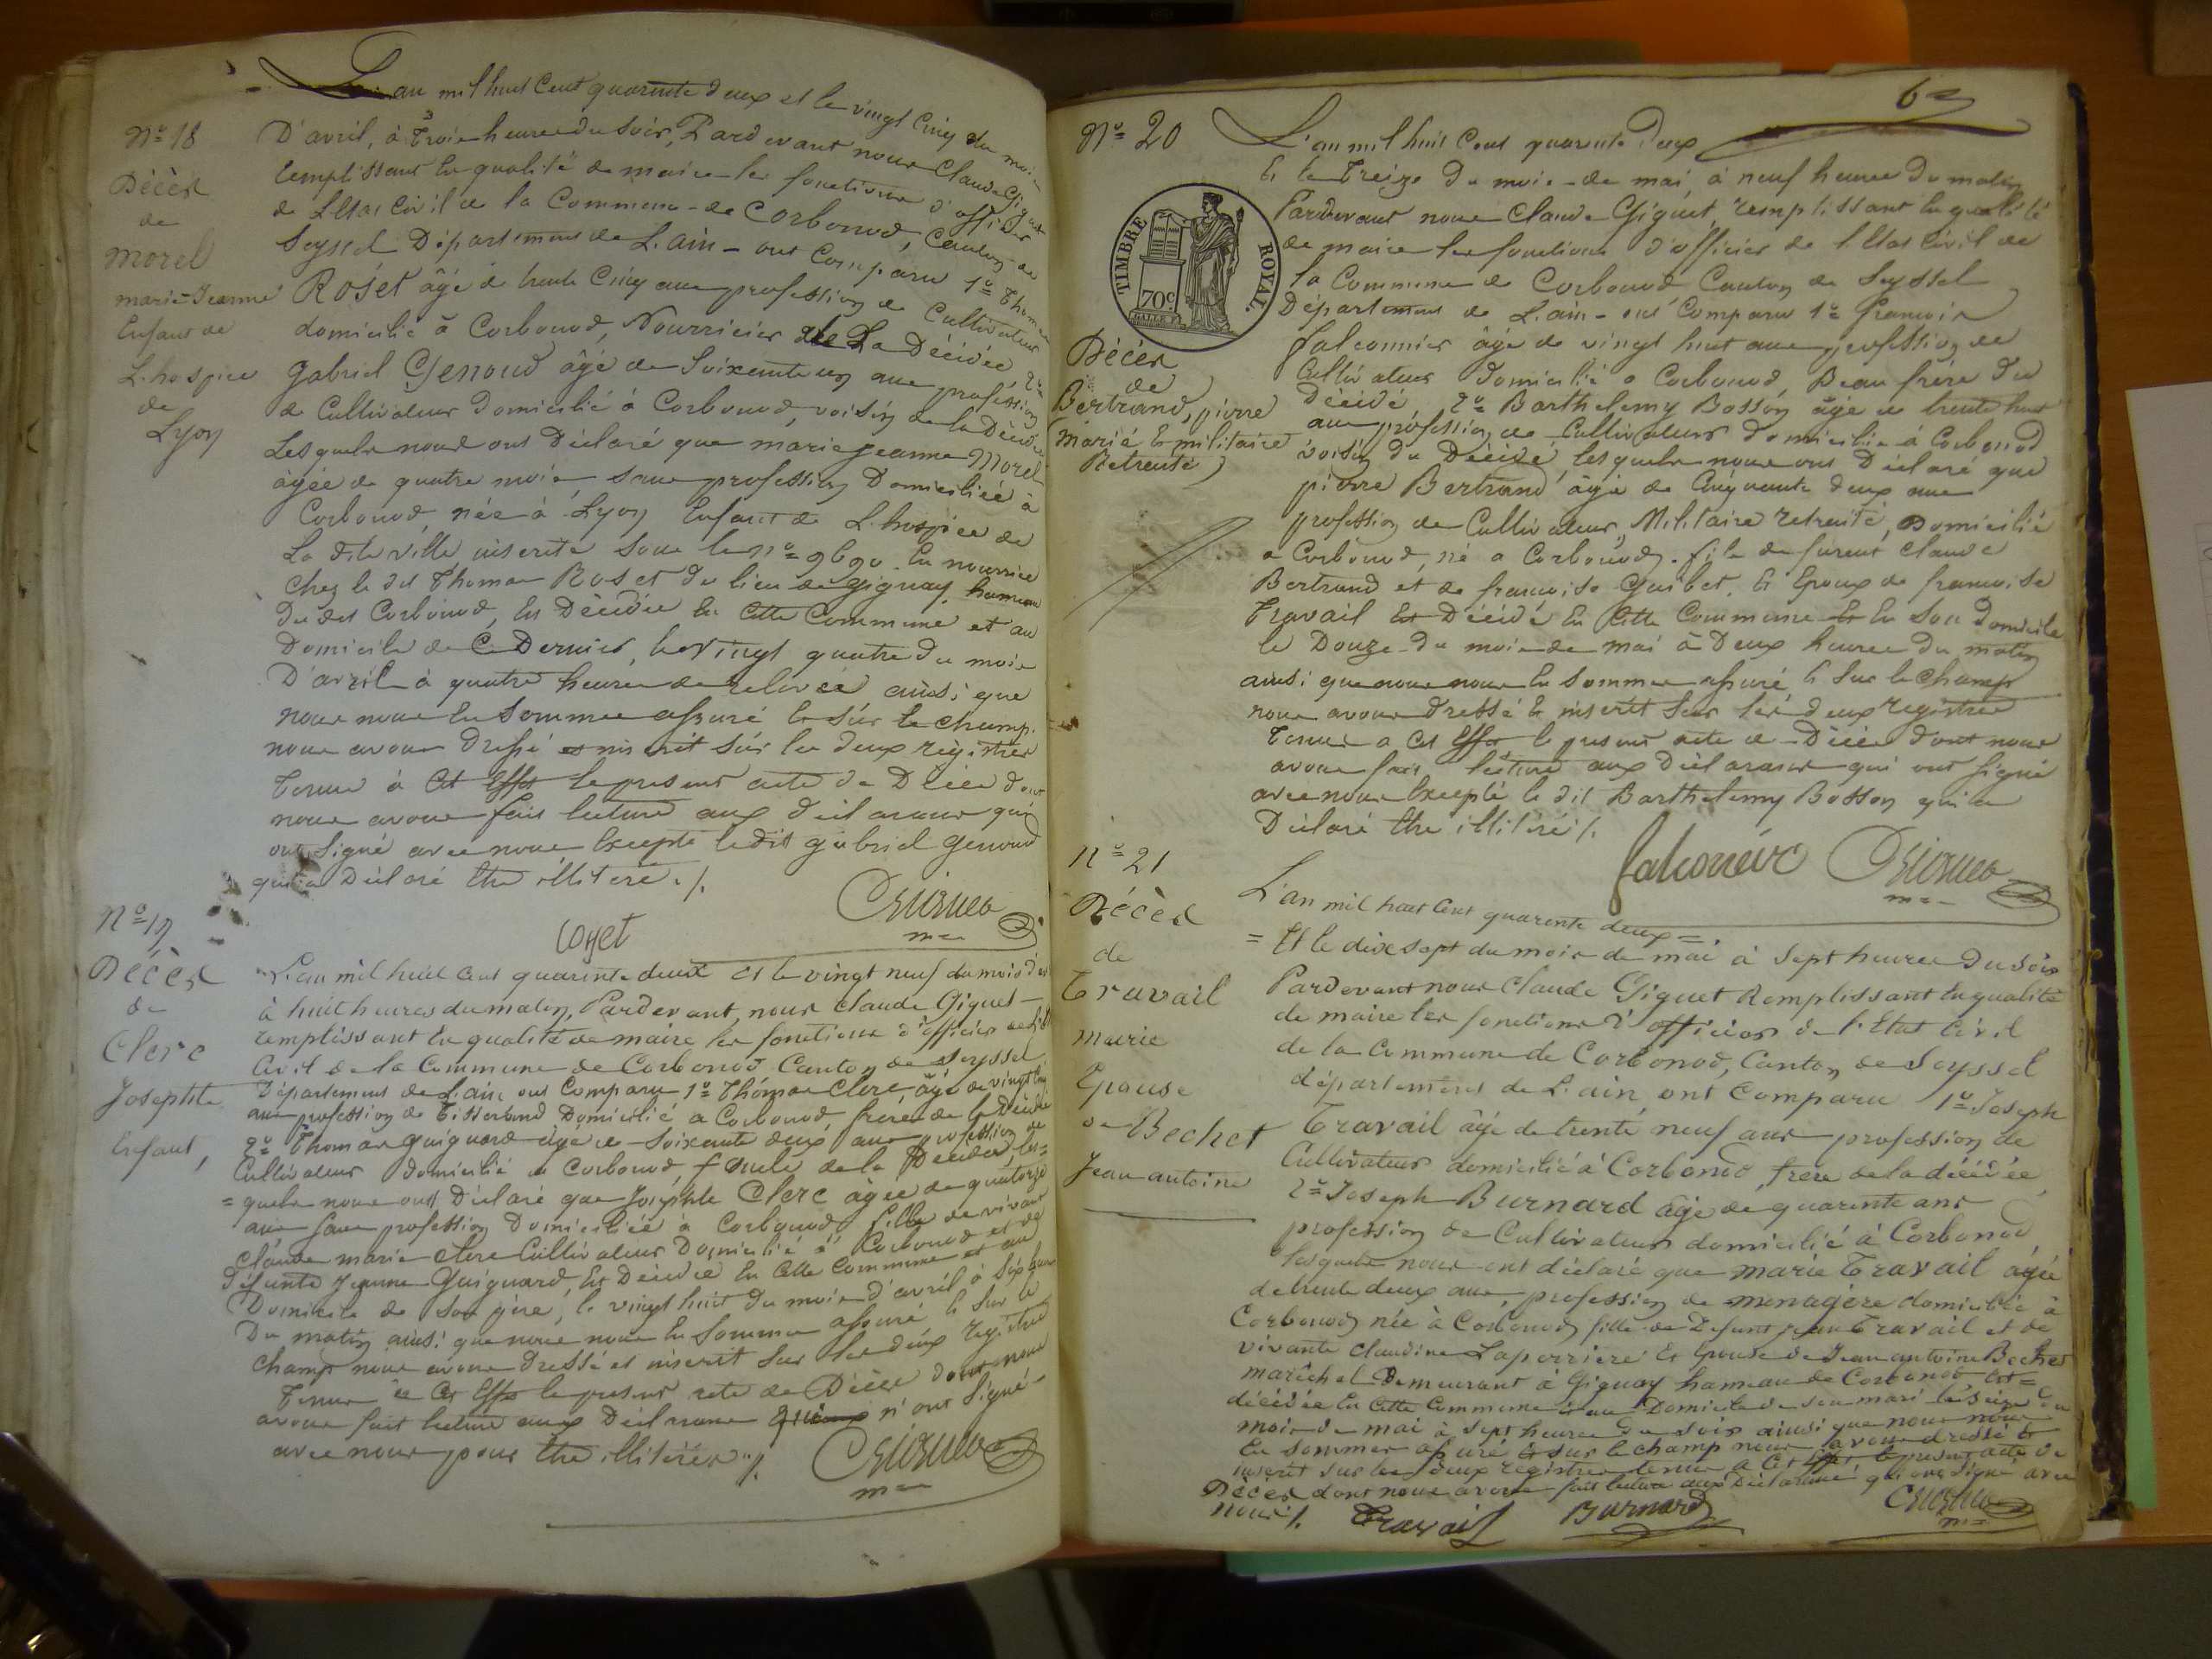 L'an mil huit Cent quarente deux et le vingt Cinq du mois
N° 18
D'avril, à Trois heures du Soir, Pardevant nous Claude Giguet
Remplissant En qualité de maire les fonctions d'officier
Décès
de
de L'Etat Civil de la Commune de Corbonod, Canton de
Seyssel Département de L'ain - ont Comparu 1° Thomas
morel
marie Jeanne
Roset âgé de trente Cinq ans profession de Cultivateur
Enfant de
domicilié à Corbonod, Nourricier de La Décédée 2°
L'hospice
gabriel Genoud âgé de Soixante un ans profession
de
de Cultivateur Domicilié à Corbonod, voisin de la Décédée
Lyon
Lesquels nous ont Déclaré que marie jeanne Morel
âgée de quatre mois, sans profession Domiciliée à
Corbonod, née à Lyon Enfant de L'hospice de
La dite ville, inscrite Sous le n° 9690 En nourrice
Chez le dit Thomas Roset du lieu de gignay, hameau
Du dit Corbonod, Est Décédée En Cette Commune et au
Domicile de Ce Dernier, le Vingt quatre du mois
D'avril à quatre heures de relevée ainsi que
nous nous En Sommes assuré Et Sur le champ
nous avons dressé et inscrit Sur les deux registres
Tenus à Cet Effet le present acte de Décès dont
nous avons fait lecture aux déclarans qui
ont Signé avec nous Excepté ledit gabriel genoud
qui a Déclaré Etre illitéré ./.
N° 19
Décès
de
Clerc
Josephte
Enfant,
L'an mil huit Cent quarente deux et le vingt neuf du mois d'
à huit heures du matin, Pardevant nous Claude Giguet
remplissant En qualité de maire les fonctions d'officier de l'Etat
Civil de la Commune de Corbonod Canton de Seyssel
Département de L'ain ont Comparu 1° Thomas Clerc âgé de vingt
ans profession de Tisserand Domicilié a Corbonod, frère de la Décédée
2° Thomas guiguard âgé de Soixante deux ans profession de
Cultivateur domicilié a Corbonod, de la Décédée les=
=quels nous ont Déclaré que Josephte Clerc âgée de quatorze
ans Sans profession Domiciliée à Corbonod, fille de vivant
Claude marie Clerc Cultivateur Domicilié à Corbonod et de
défunte Jeanne Guiguard, Est Décédée En Cette Commune et au
Domicile de Son père, le vingt huit du mois d'avril à Six heures
Du matin ainsi que nous nous En Sommes assuré Et Sur le
Champ nous avons Dressé et inscrit Sur les deux registres
Tenus à Cet Effet le present acte de Décès dont nous
avons fait lecture aux Déclarans n'ont Signé
avec nous pour Etre illitérés ./.
6
N° 20
L'an mil huit Cent quarente Deux
Et le Treize du mois de mai, à neuf heures du matin
Pardevant nous Claude Giguet, remplissant En qualité
de maire les fonctions d'officier de l'Etat Civil de
la Commune de Corbonod Canton de Seyssel
Département de L'ain - ont Comparu 1° francois
TIMBRE ROYAL
70c
falconnier âgé de vingt huit ans profession de
Cultivateur domicilié a Corbonod, Beau frère du
Décès
de
Bertrand, pierre
marié Et militaire
Retreuté
Décédé, 2° Barthelemy Bosson âgé de trente huit
ans profession de Cultivateur domicilié à Corbonod
voisin du Décédé, lesquels nous ont Déclaré que
pierre Bertrand âgé de Cinquante deux ans
profession de Cultivateur, Militaire retreuté, Domicilié
a Corbonod, né a Corbonod, fils de furent Claude
Bertrand et de francoise Guibet, Et Epoux de francoise
Travail Est Décédé En Cette Commune Et En Son Domicile
le Douze du mois de mai à Deux heures du matin
ainsi que nous nous En Sommes assuré, Et Sur le Champ
nous avons dressé Et inscrit Sur les deux registres
Tenus a Cet Effet le present acte de Décès dont nous
avons fait lecture aux Déclarans qui ont Signé
avec nous Excepté le dit Barthelemy Bosson qui a
Déclaré Etre illitéré ./.
falconier
N° 21
Décès
de
Travail
marie
Epouse
de Bechet
Jean antoine
L'an mil huit Cent quarente deux =
= Et le dixsept du mois de mai à Sept heures du Soir
Pardevant nous Claude Giguet Remplissant En qualité
de maire les fonctions d'officier de l'Etat Civil
de la Commune de Corbonod, Canton de Seyssel
département de L'ain ont Comparu 1° Joseph
Travail âgé de trente neuf ans profession de
Cultivateur domicilié à Corbonod, frère de la décédée
2° Joseph Burnard âgé de quarente ans
profession de Cultivateur domicilié à Corbonod
lesquels nous ont déclaré que marie Travail âgée
de trente deux ans, profession de menagère domiciliée à
Corbonod, née à Corbonod, fille de Defunt jean Travail et de
vivante Claudine Laperriere Et Epouse de Jean antoine Bechet
maréchal Demeurant à Gignay hameau de Corbonod Est=
décédée En Cette Commune Et au Domicile de Son mari le Seize du
mois de mai à Sept heures du Soir ainsi que nous nous
En Sommes assuré Et Sur le Champ nous avons dressé Et
inscrit Sur les deux registres tenus a Cet Effet le present acte de
Décès dont nous avons fait lecture aux Déclarans qui ont Signé avec
nous ./. Travail Burnard